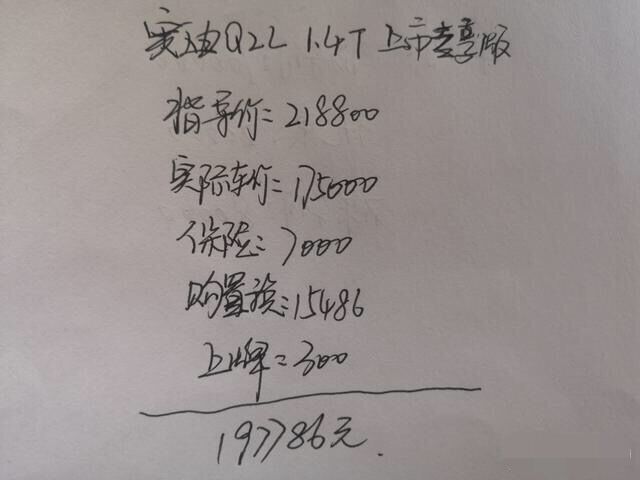 奥迪Q2L 1.4T 上市专享版
指导价=218800
实际车价=175000
保险=7000
购置税=15486
上牌=300
197786元.